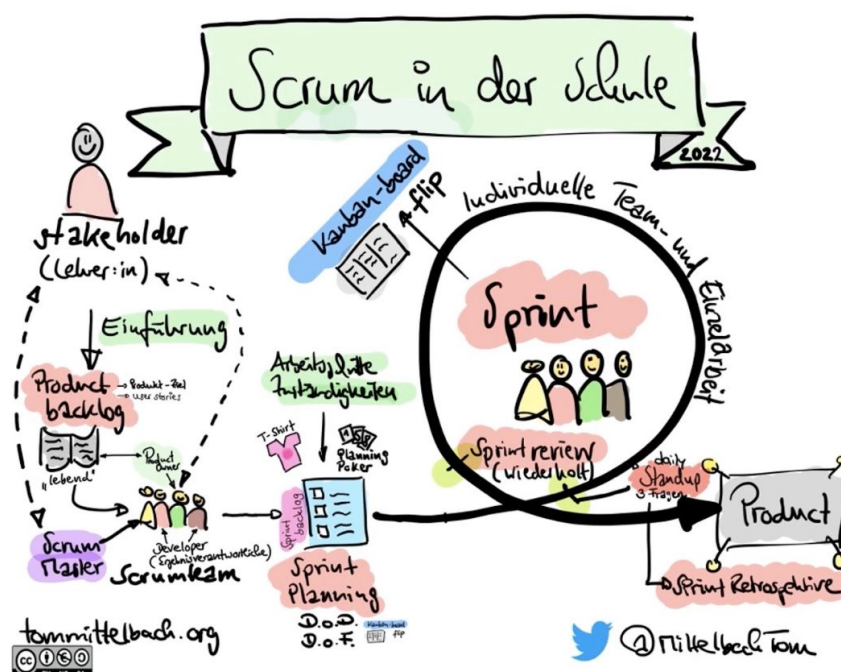 Scrum in der Schule
2022
Stakeholder
(Lehrer:in)
Einführung
Product
backlog
→ Produkt-Ziel
→ user stories
"lebend"
Product
owner
Scrum
Master
Developer
(Ergebnisverantwortliche)
Scrumteam
Arbeitsschritte
Zuständigkeiten
T-Shirt
Planning
Poker
Sprint
backlog
Sprint
Planning
D.o.D.
D.o.F.
Kanban-board
flip
Kanban-board
flip
Individuelle Team- und Einzelarbeit
Sprint
Sprint review
(wiederholt)
daily
Standup
3 Fragen
Product
Sprint Retrospektive
tommittelbach.org
cc
@MittelbachTom